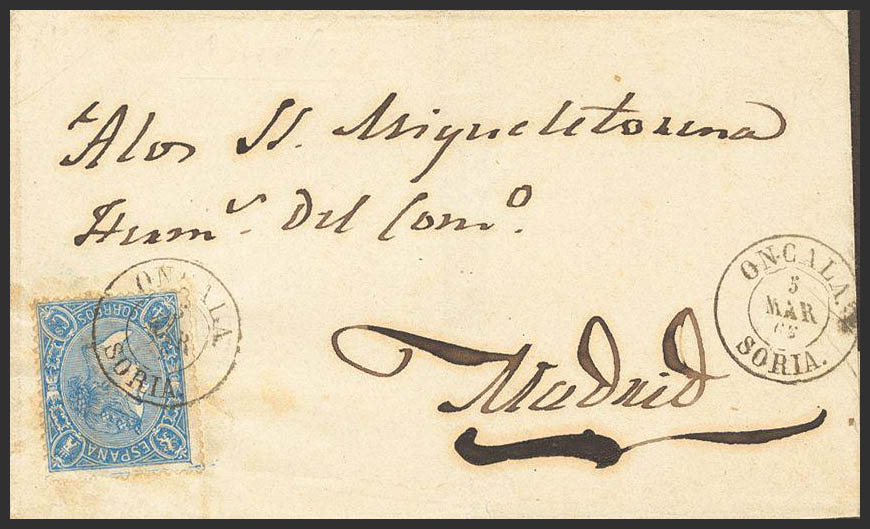 A los SS. Migueletorena
Herm.s Del Com.o
Madrid
ONCALA
5
MAR
65
SORIA.
ONCALA
SORIA.
CORREOS
ESPAÑA